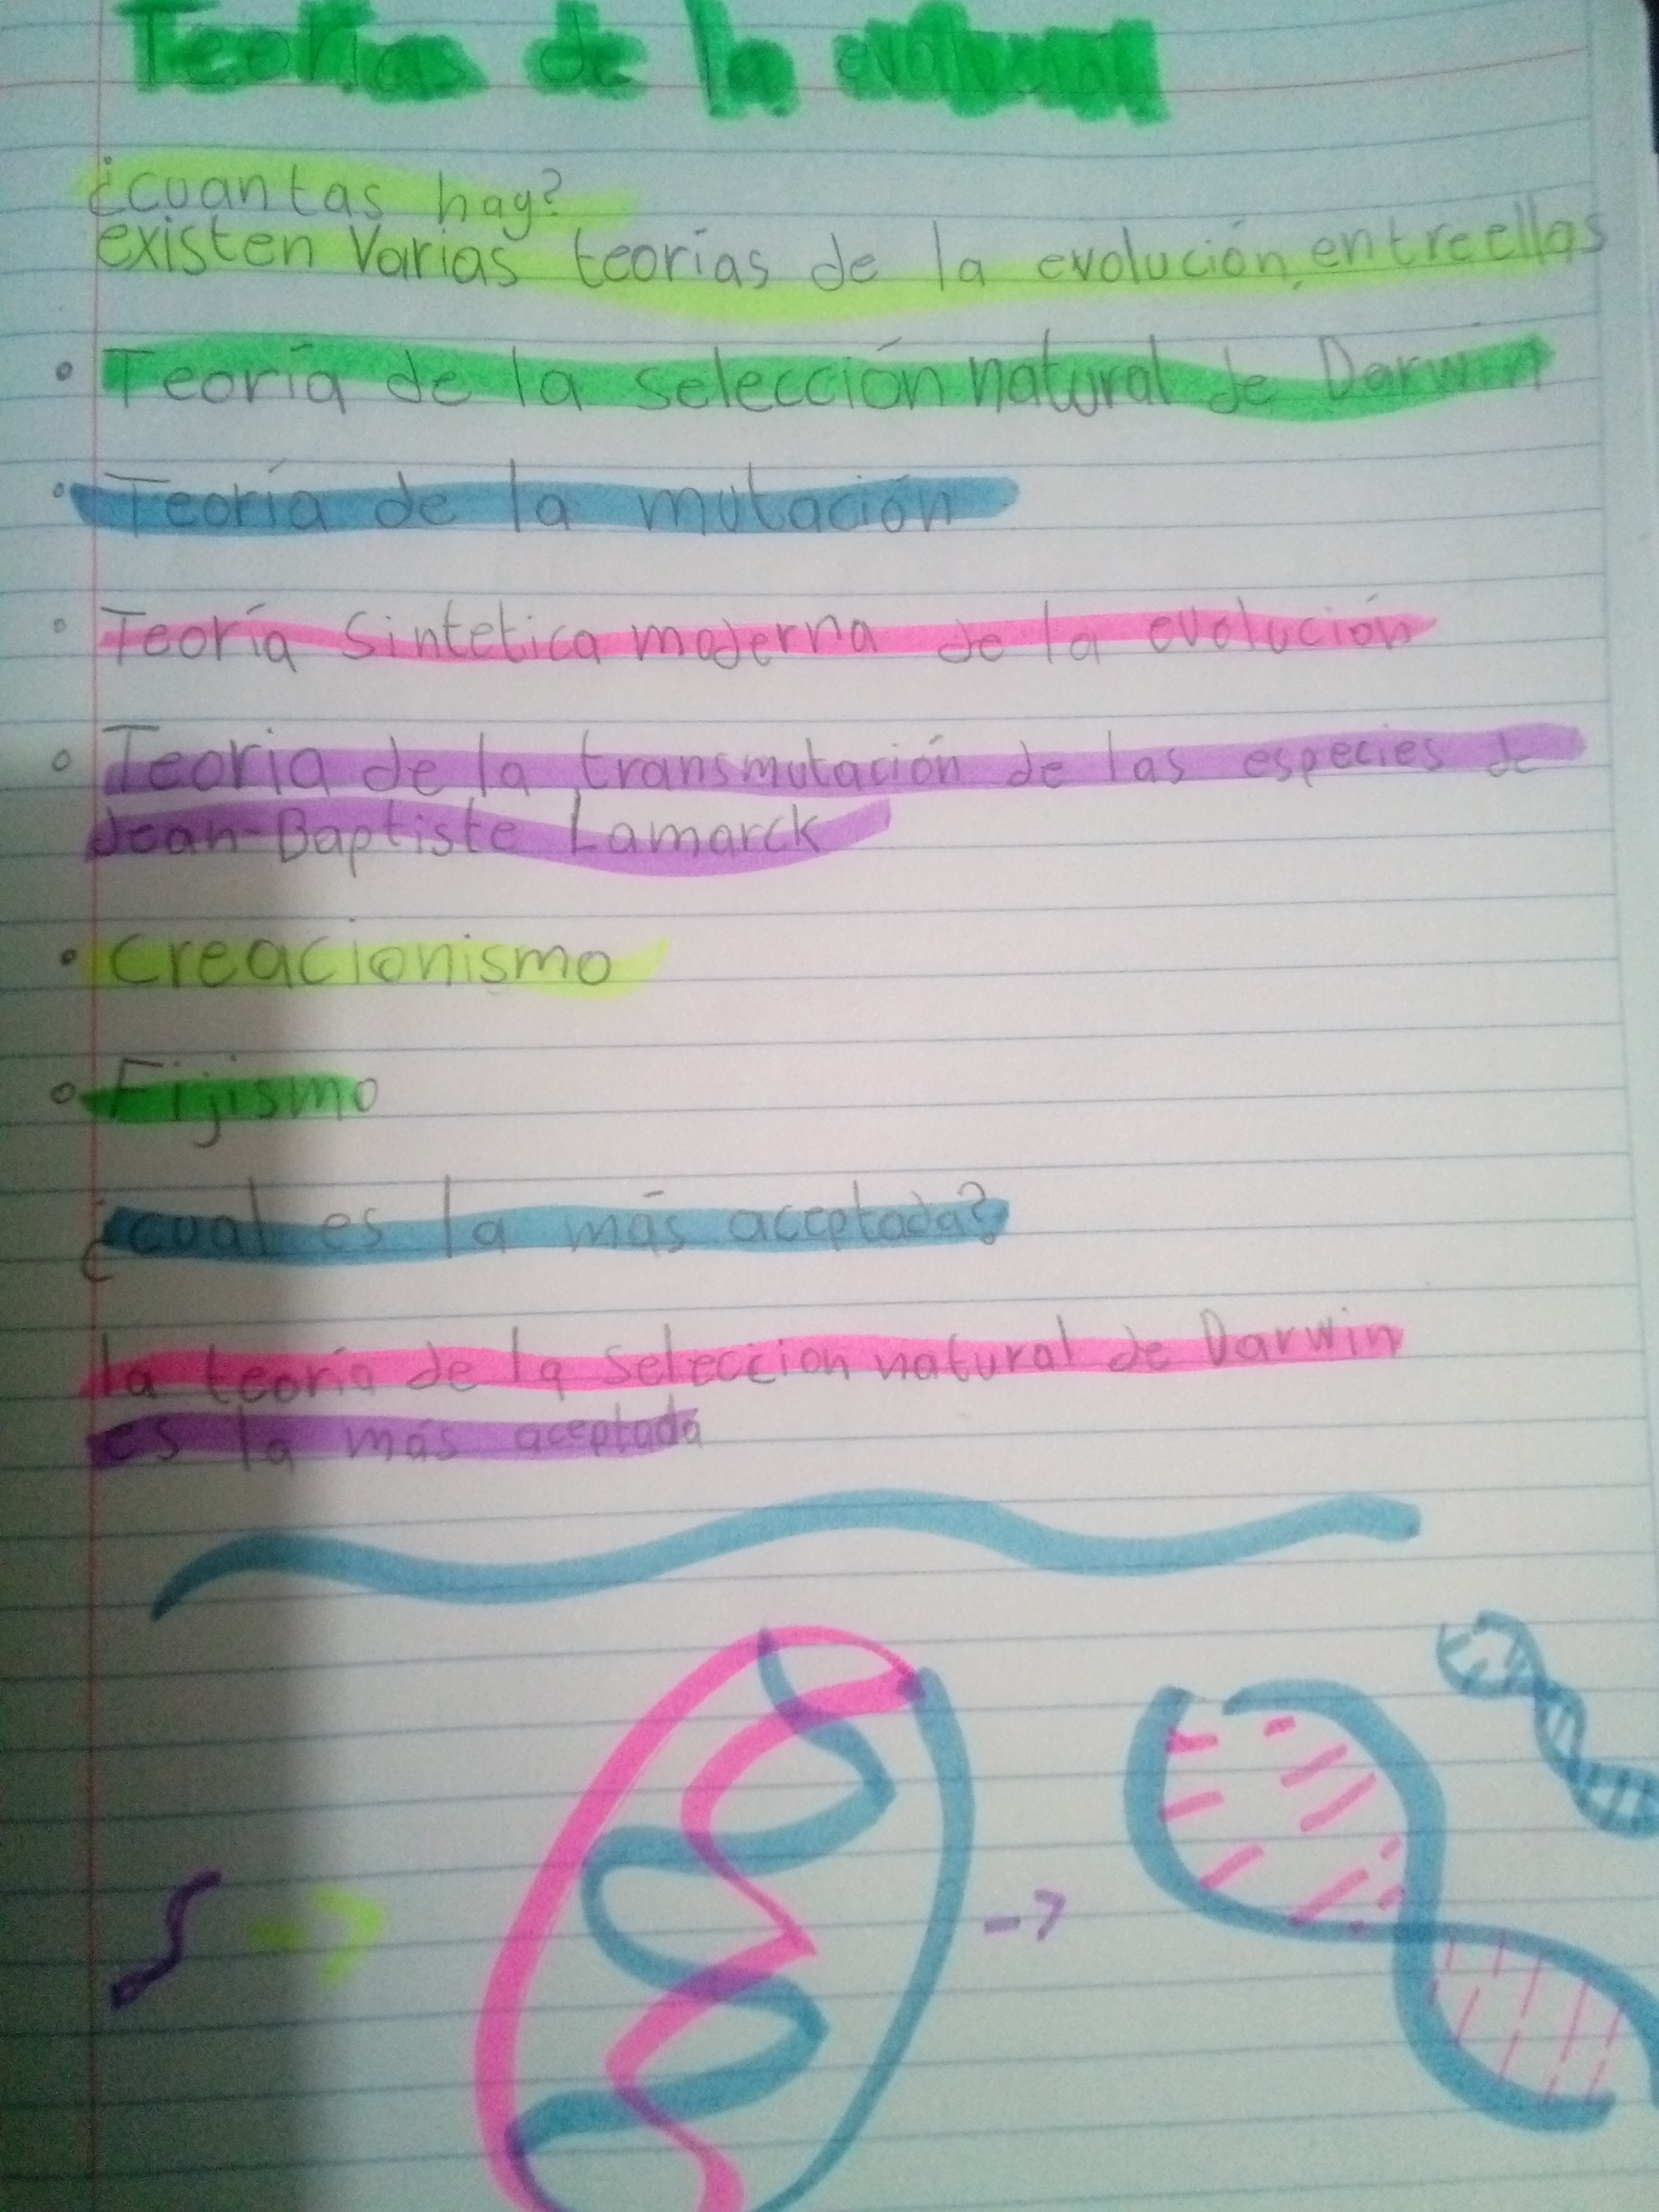 Teorías de la evolución
¿cuantas hay?
existen Varias teorías de la evolución, entre ellas
• Teoría de la selección natural de Darwin
• Teoría de la mutación.
• Teoría Sintetica moderna de la evolución
• Teoria de la transmutación de las especies de
Jean-Baptiste Lamarck
• Creacionismo
• Fijismo
¿cual es la más aceptada?
la teoría de la Selección natural de Darwin
es la más aceptada